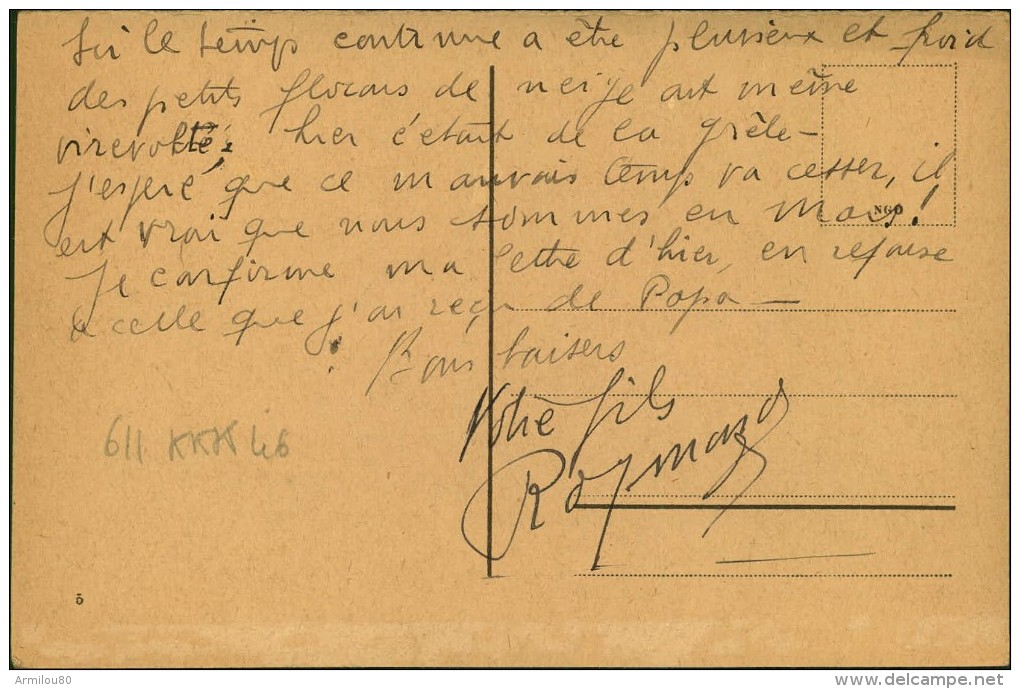 Ici le temps continue a être pluvieux et froid
des petits flocons de neige ont même
virevolté, hier c'était de la grêle —
J'espère que ce mauvais temps va cesser, il
est vrai que nous sommes en Mars!
NGO
Je confirme ma lettre d'hier, en réponse
à celle que j'ai reçu de Papa —
Bons baisers
Votre fils
Raymond
611 KKK 46
5
Armilou80
www.delcampe.net